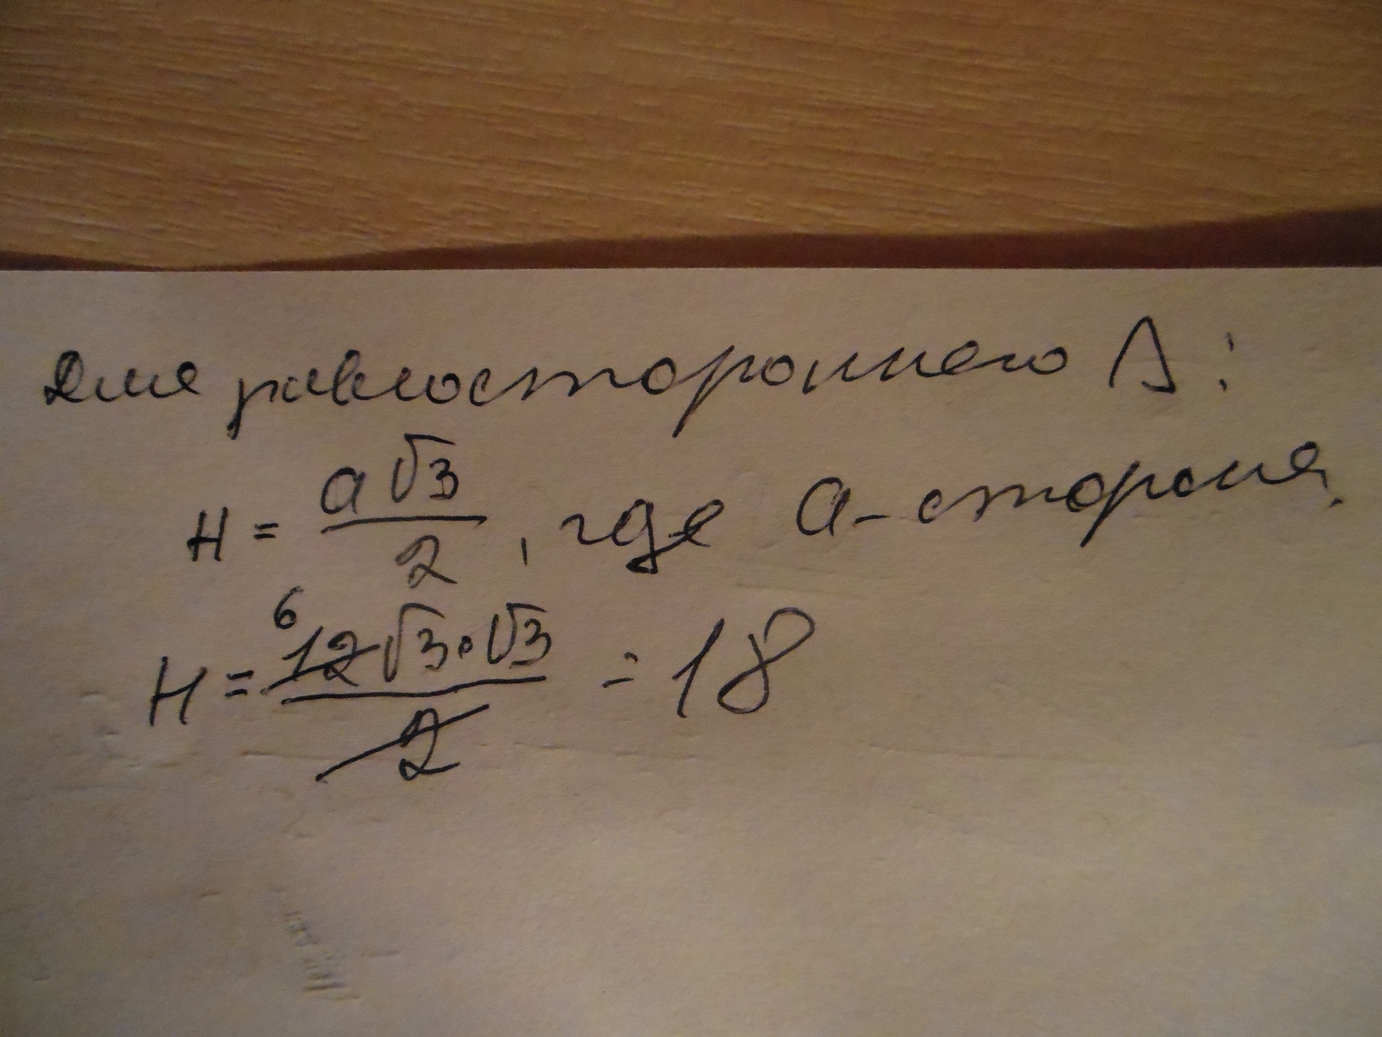 Для равностороннего Δ:
H = a√3/2, где a - сторона.
H = 6 12√3·√3/2 = 18